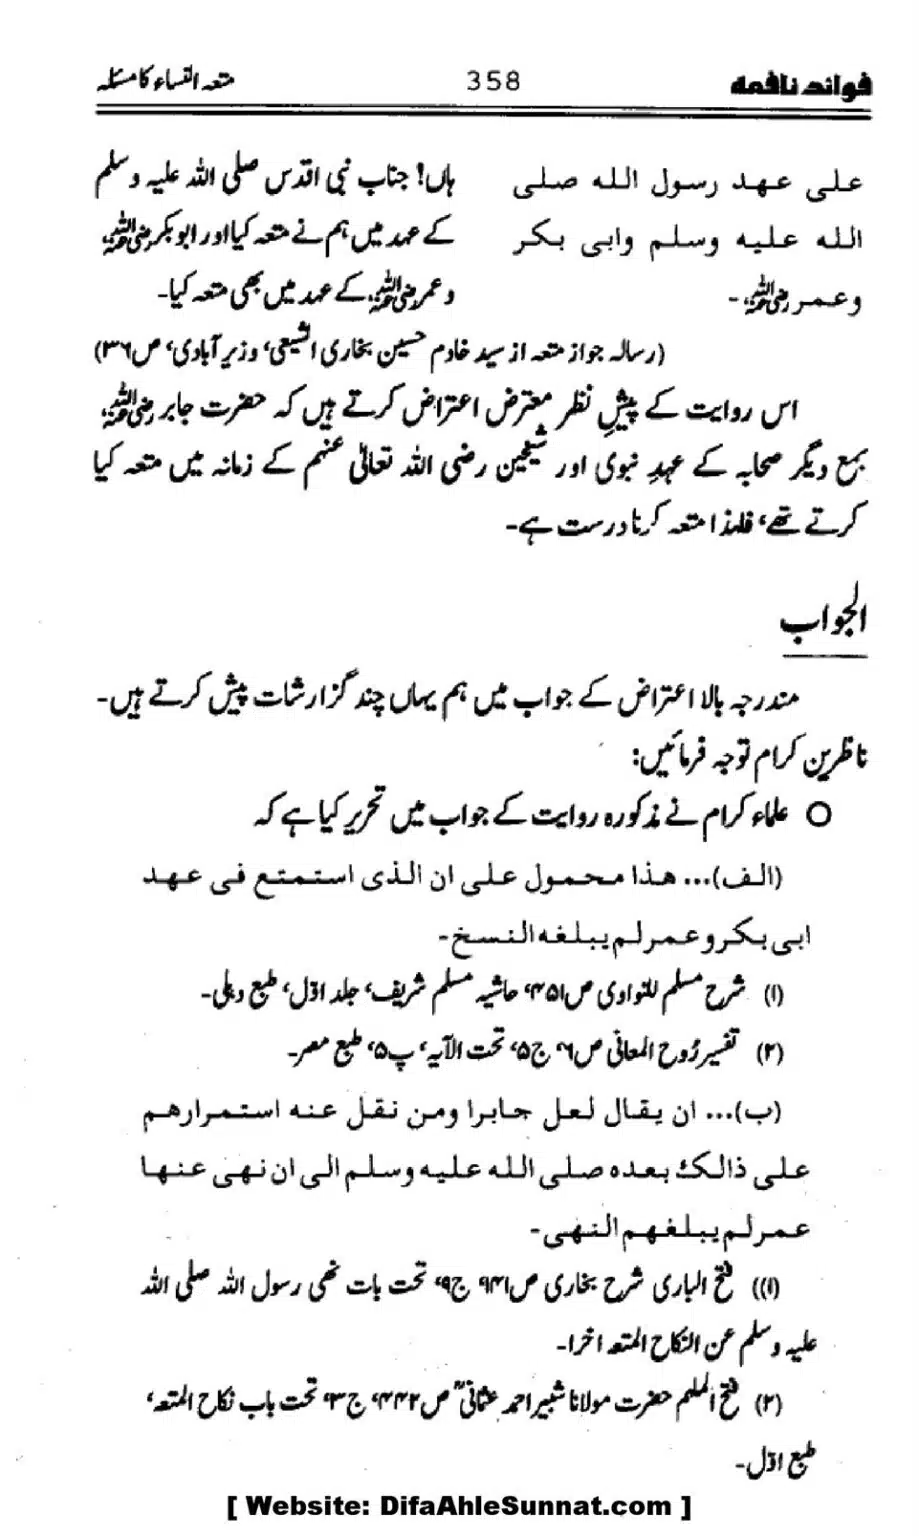 فوائد نافعه 358 متعہ النساء کا مسئلہ
علی عہد رسول اللہ صلی ہاں! جناب نبی اقدس صلی اللہ علیہ وسلم
اللہ علیہ وسلم وابی بکر کے عہد میں ہم نے متعہ کیا اور ابوبکر رضی اللہ عنہ
وعمر رضی اللہ عنہ۔ وعمر رضی اللہ عنہ کے عہد میں بھی متعہ کیا۔
(رسالہ جواز متعہ از سید خادم حسین بخاری الشیعی، وزیر آبادی، ص۳۶)
اس روایت کے پیشِ نظر معترض اعتراض کرتے ہیں کہ حضرت جابر رضی اللہ عنہ
بمع دیگر صحابہ کے عہدِ نبوی اور شیخین رضی اللہ تعالیٰ عنہم کے زمانہ میں متعہ کیا
کرتے تھے، فلہٰذا متعہ کرنا درست ہے۔
الجواب
مندرجہ بالا اعتراض کے جواب میں ہم یہاں چند گزارشات پیش کرتے ہیں۔
ناظرین کرام توجہ فرمائیں:
○ علماء کرام نے مذکورہ روایت کے جواب میں تحریر کیا ہے کہ
(الف)... ھذا محمول علی ان الذی استمتع فی عھد
ابی بکر و عمر لم یبلغہ النسخ۔
(۱) شرح مسلم للنواوی ص۴۵۱، حاشیہ مسلم شریف، جلد اوّل، طبع دہلی۔
(۲) تفسیر رُوح المعانی ص۶، ج۵، تحت الآیہ، پ۵، طبع مصر۔
(ب)... ان یقال لعل جابرا ومن نقل عنہ استمرارھم
علی ذالک بعدہ صلی اللہ علیہ وسلم الی ان نھی عنھا
عمر لم یبلغھم النھی۔
(۱)) فتح الباری شرح بخاری ص۱۴۱، ج۹، تحت بات نھی رسول اللہ صلی اللہ
علیہ وسلم عن النکاح المتعہ اخرا۔
(۲) فتح الملہم حضرت مولانا شبیر احمد عثمانیؒ ص۴۴۲، ج۳، تحت باب نکاح المتعہ،
طبع اوّل۔
[ Website: DifaAhleSunnat.com ]